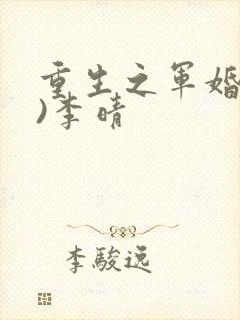 重生之軍婚
)李晴
李駿逸